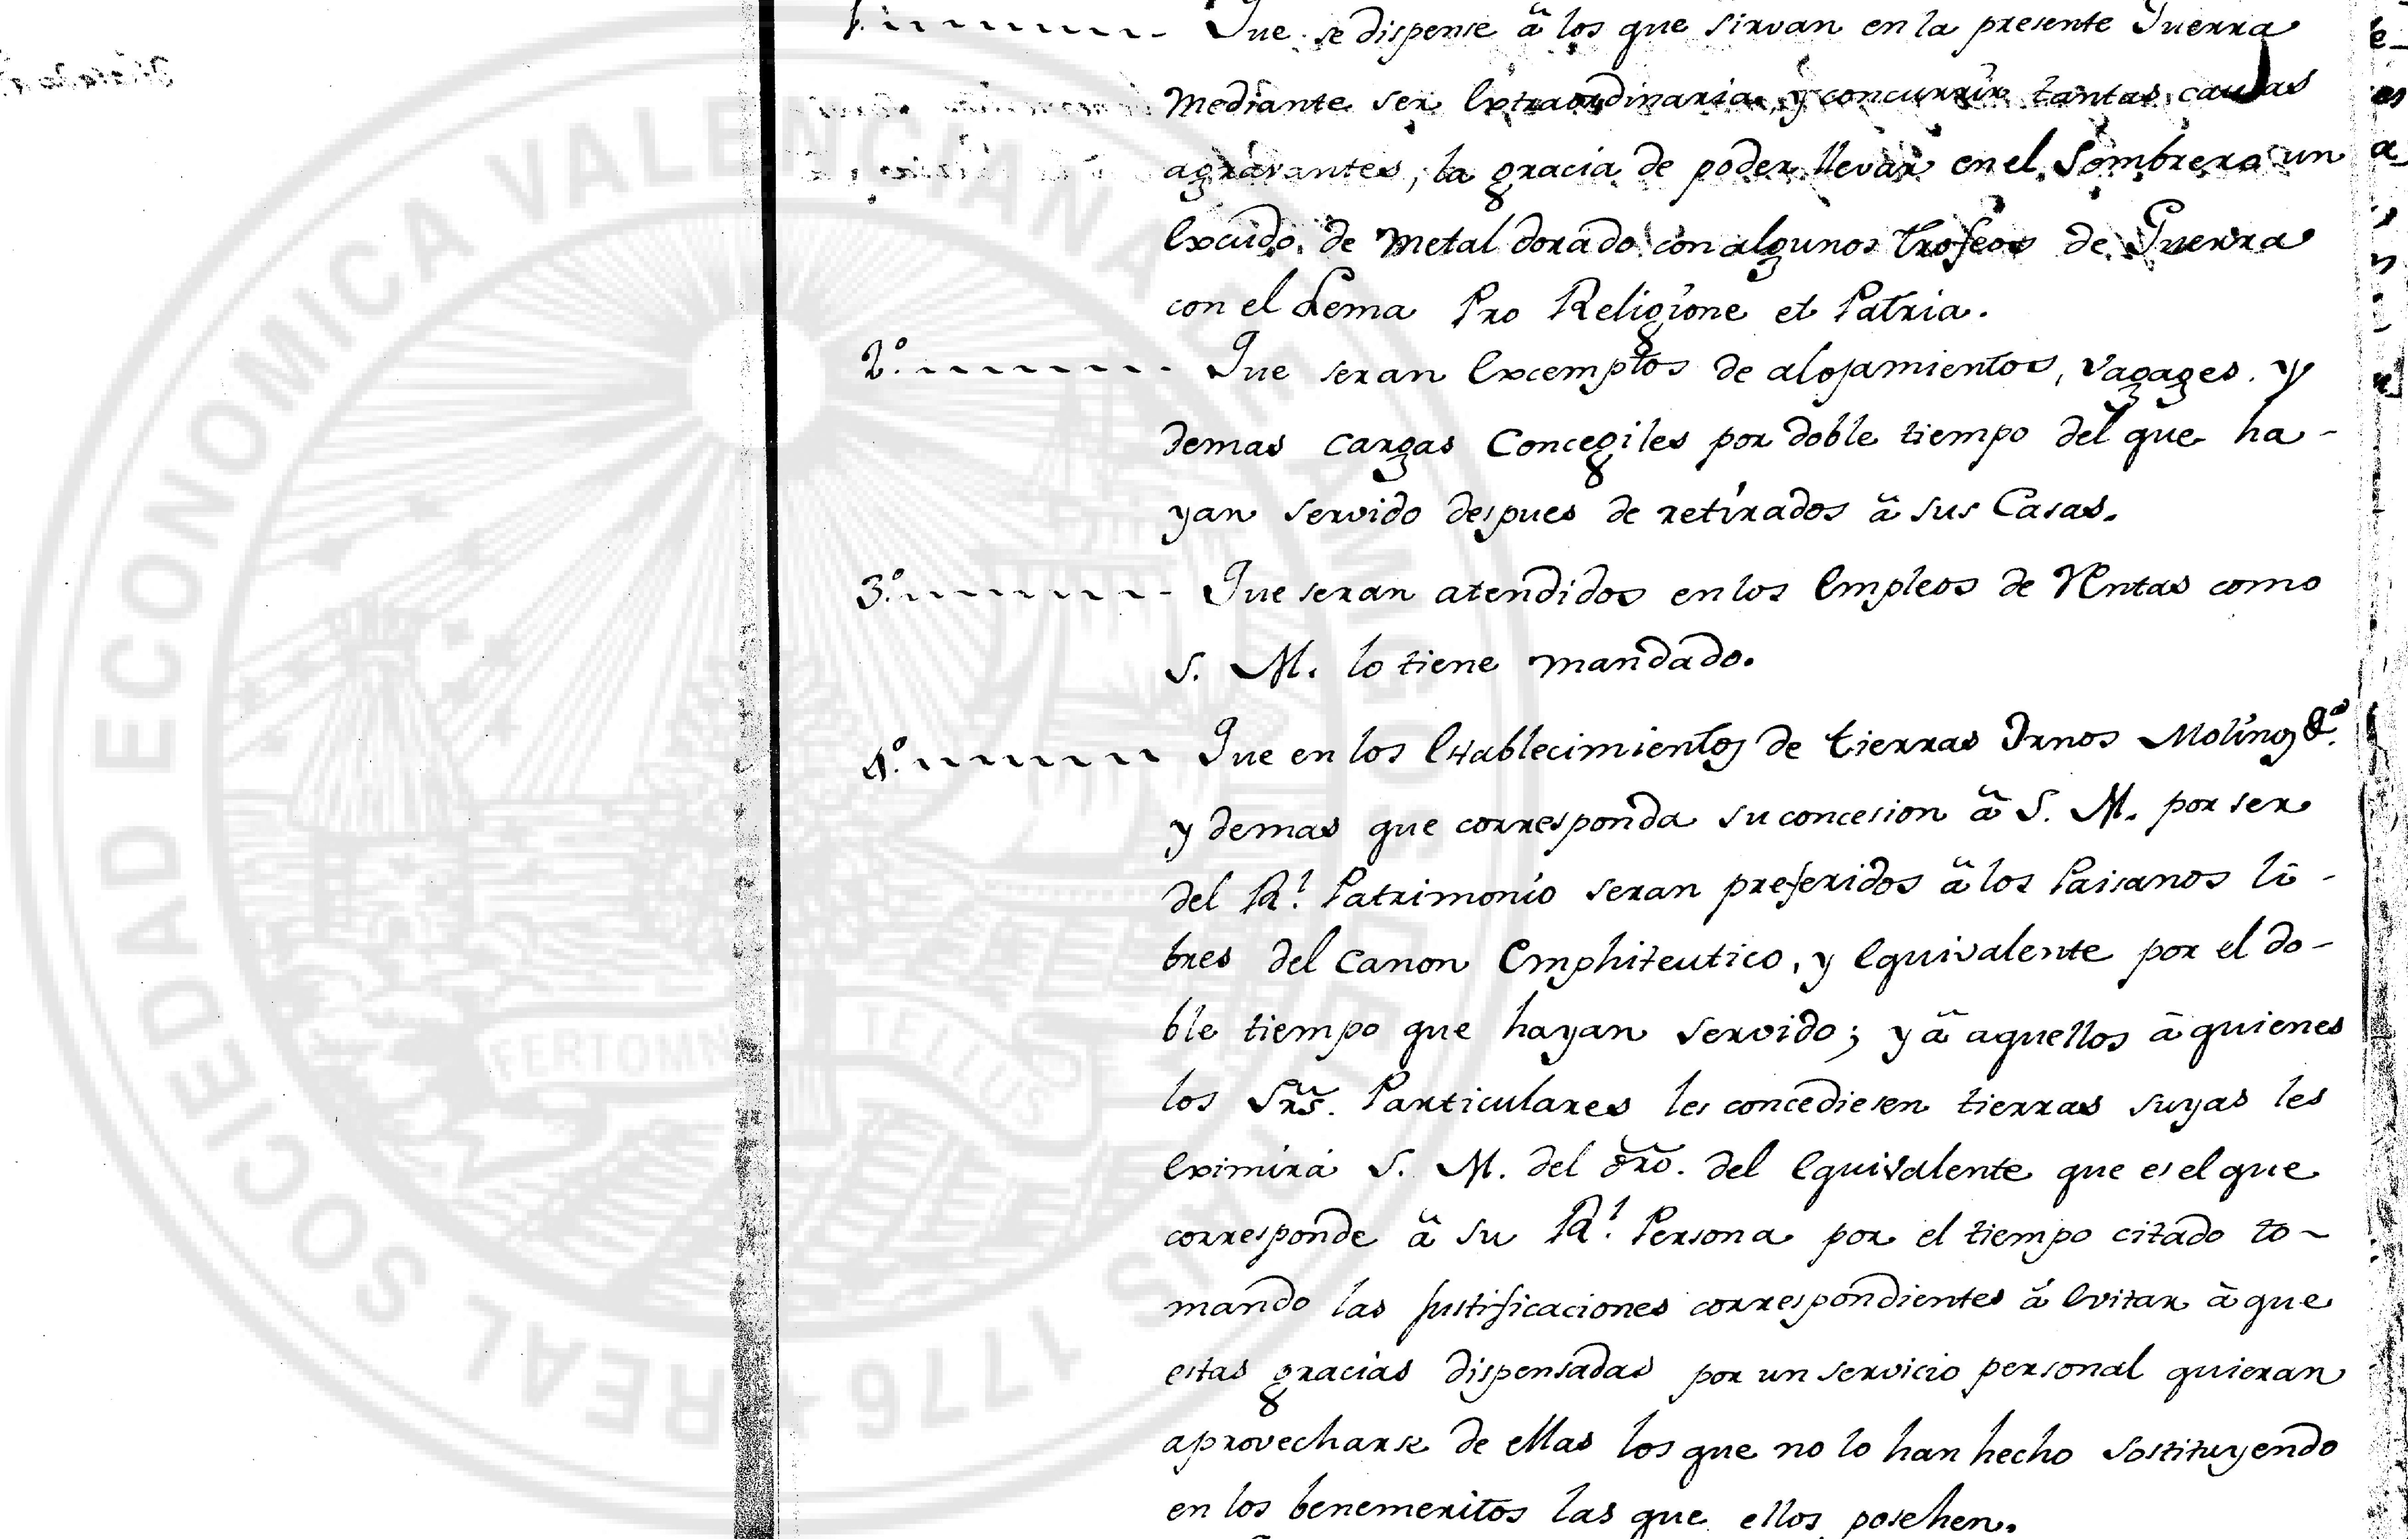 1. Que se dispense â los que sirvan en la presente Guerra
mediante ser Extraordinaria, y concurrir tantas causas
agravantes, la gracia de poder llevar en el Sombrero un
Excudo de metal dorado con algunos trofeos de Guerra
con el Lema Pro Religione et Patria.
2.º Que seran Excemptos de alojamientos, vagages. y
demas cargas Concegiles por doble tiempo del que ha-
yan servido despues de retirados â sus Casas.
3.º Que seran atendidos en los Empleos de Rentas como
S. M. lo tiene mandado.
4.º Que en los Establecimientos de tierras Ornos Molinos &.ª
y demas que corresponda su concesion â S. M. por ser
del R.l Patrimonio seran preferidos â los Paisanos li-
bres del Canon Emphiteutico, y Equivalente por el do-
ble tiempo que hayan servido; y â aquellos â quienes
los Srs. Particulares les concediesen tierras suyas les
Eximirá S. M. del dro. del Equivalente que es el que
corresponde â su R.l Persona por el tiempo citado to-
mando las justificaciones correspondientes â Evitar â que
estas gracias dispensadas por un servicio personal quieran
aprovecharse de ellas los que no lo han hecho sostituyendo
en los benemeritos las que ellos posehen.
REAL SOCIEDAD ECONOMICA VALENCIANA DE AMIGOS DEL PAIS 1776